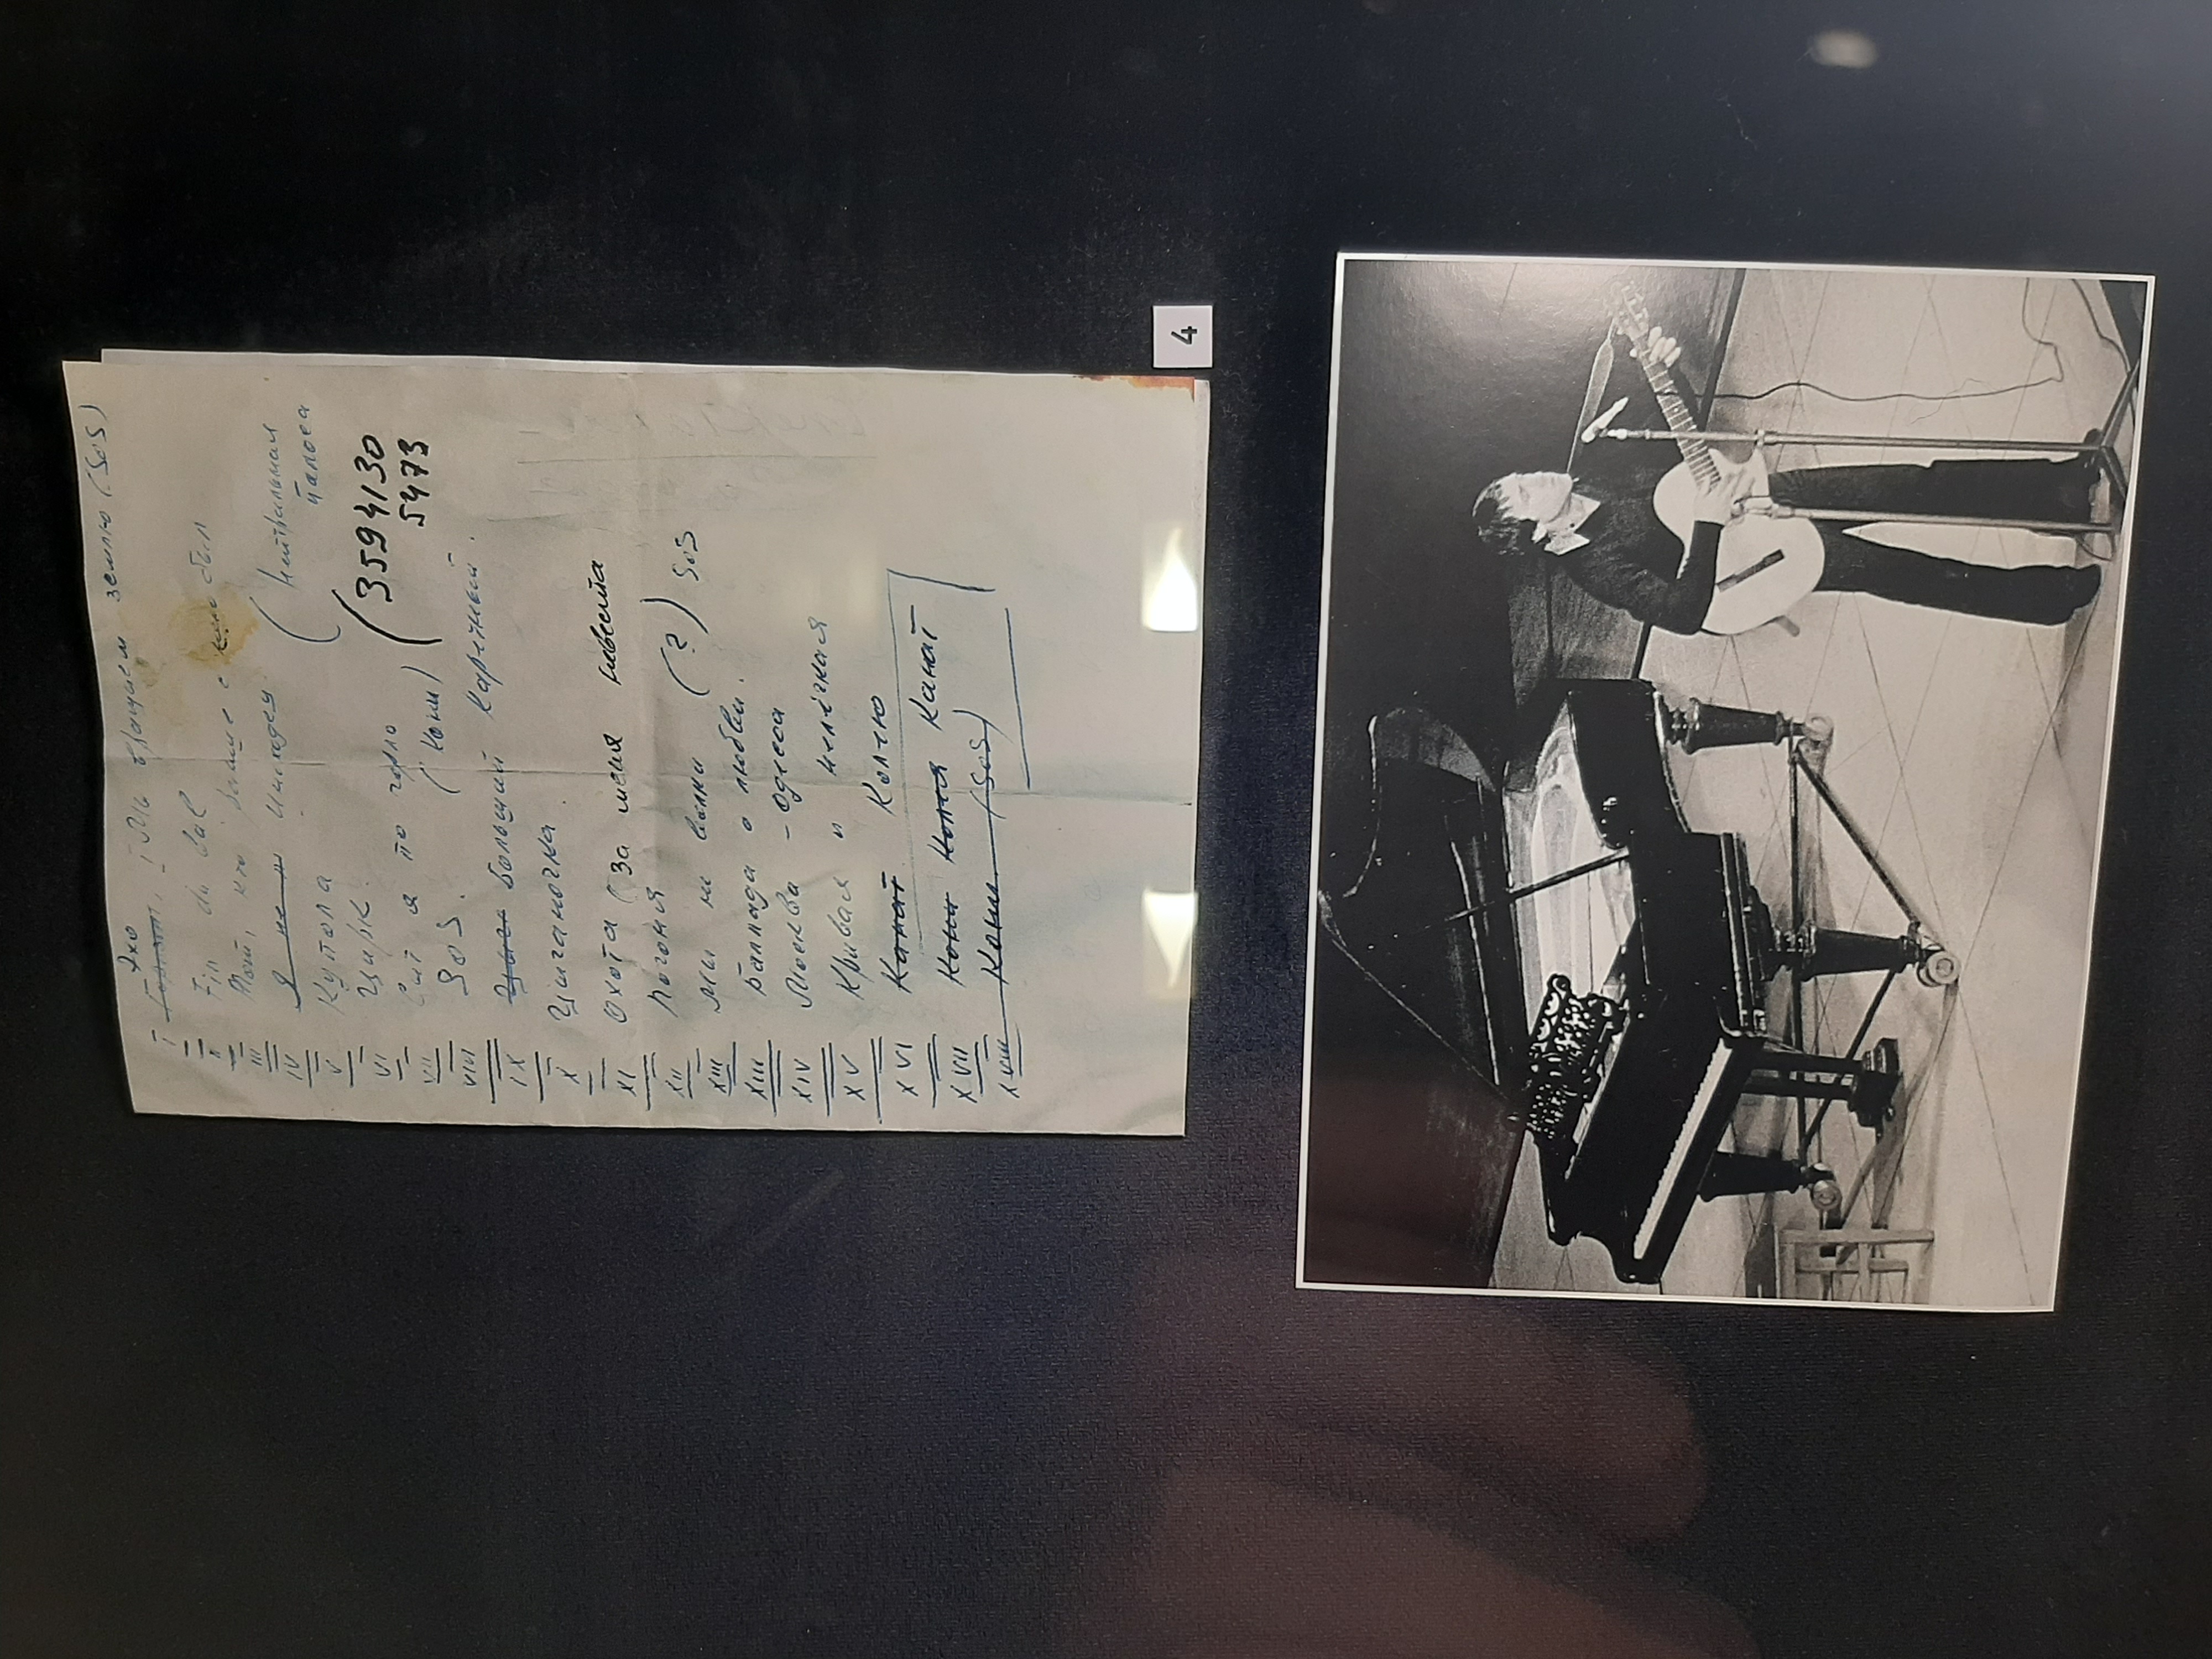 Эхо
I Мы вращаем землю (SOS)
II Fin du bal
III Тот, кто раньше с нею был
IV Я не
(Нейтральная
полоса
V Купола
VI Цирк.
(3594130
VII Сыт я по горло
5473
VIII SOS. (Кони)
IX Большой Каретный.
X Цыганочка.
XI Охота (за меня невеста
XII Погоня
XIII Мы не волки (?) SOS
XIII Баллада о любви.
XIV Москва - Одесса
XV Кривая и нелёгкая
XVI Канат Колею
XVII Кони Канат
XVIII Кони (SOS)
4